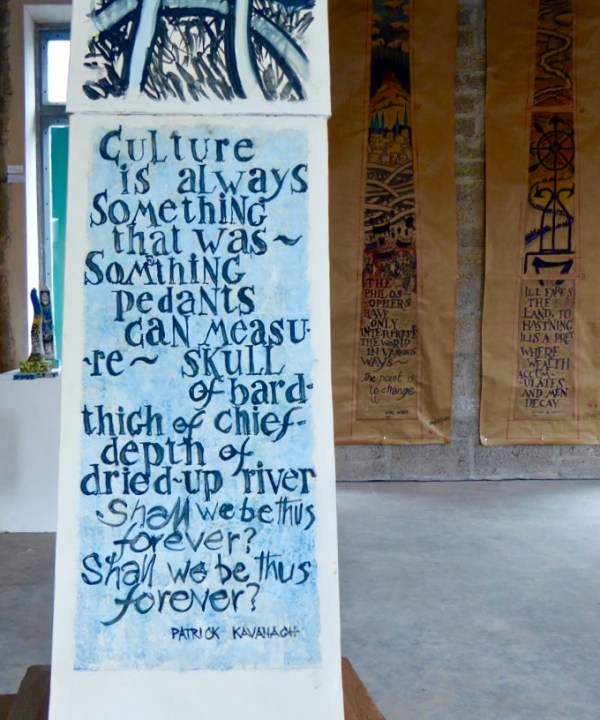 Culture
is always
Something
that was~
Something
pedants
can measu-
-re~ SKULL
of bard-
thigh of chief-
depth of
dried-up river
Shall we be thus
forever?
Shall we be thus
forever?
PATRICK KAVANAGH
THE
PHILOS-
OPHERS
HAVE
ONLY
INTERPRETED
THE WORLD
IN VARIOUS
WAYS~
the point is
to change
it
ILL FARES
THE
LAND, TO
HASTNING
ILLS A PREY
WHERE
WEALTH
ACCUM-
ULATES
AND MEN
DECAY